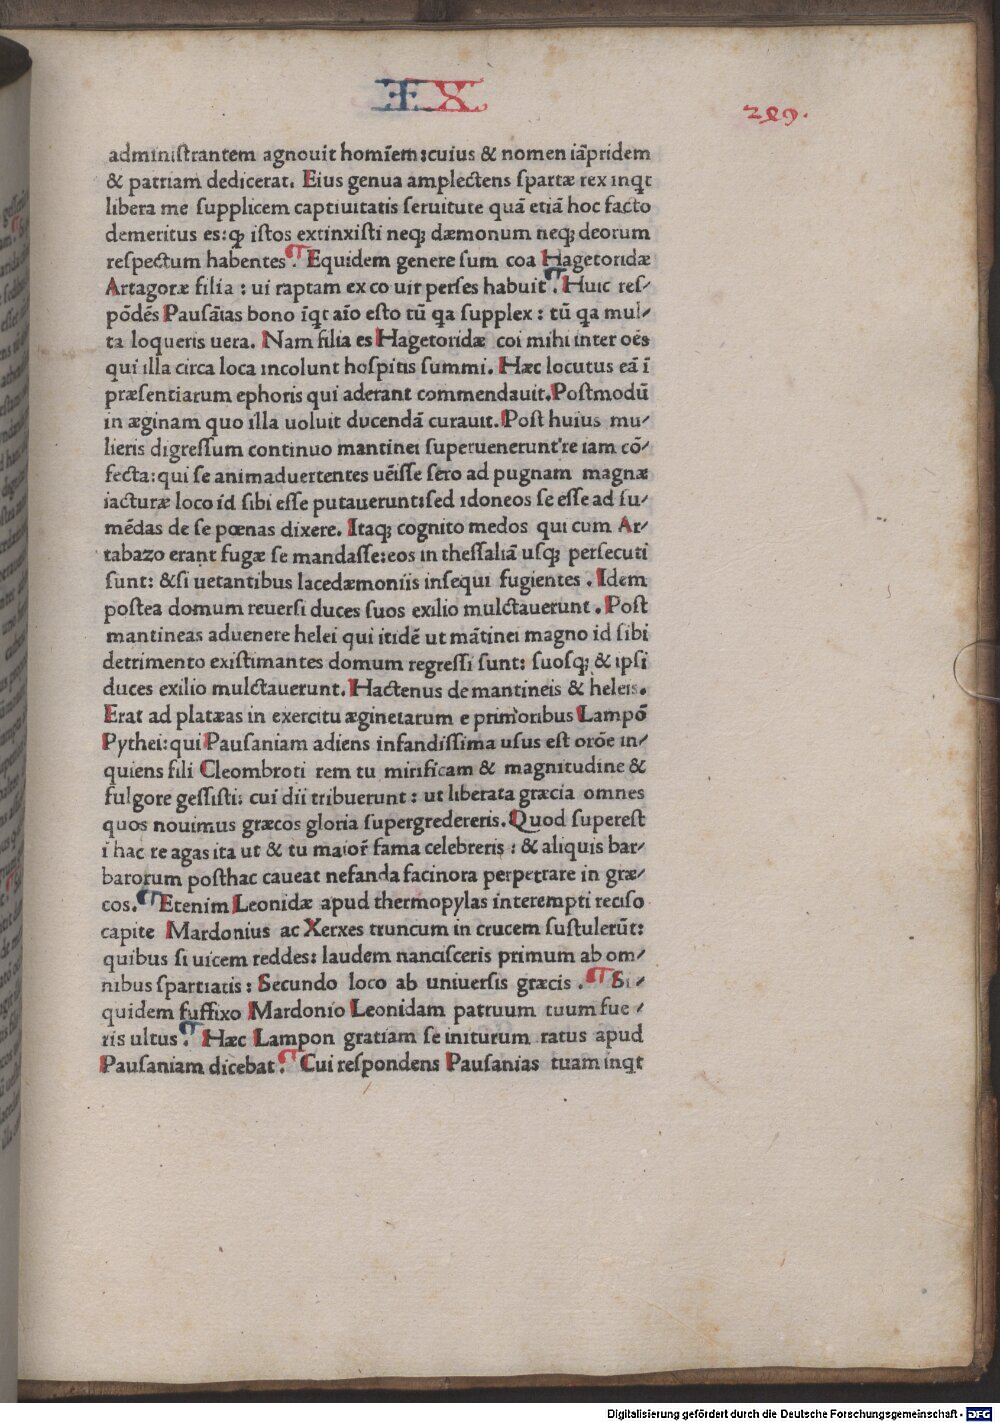 IX
289.
adminiſtrantem agnouit homīem:cuius & nomen iāpridem
& patriam dedicerat. Eius genua amplectens ſpartæ rex inqt
libera me ſupplicem captiuitatis ſeruitute quā etiā hoc facto
demeritus es:ꝙ iſtos extinxiſti neqꝫ dæmonum neqꝫ deorum
reſpectum habentes. ¶ Equidem genere ſum coa Hagetoridæ
Artagoræ filia : ui raptam ex co uir perſes habuit. ¶ Huic reſ/
pōdēs Pauſāias bono īqt aīo eſto tū qa ſupplex : tū qa mul/
ta loqueris uera. Nam filia es Hagetoridæ coi mihi inter oēs
qui illa circa loca incolunt hoſpitis ſummi. Hæc locutus eā ī
præſentiarum ephoris qui aderant commendauit. Poſtmodū
in æginam quo illa uoluit ducendā curauit. Poſt huius mu/
lieris digreſſum continuo mantinei ſuperuenerunt re iam cō/
fecta:qui ſe animaduertentes uēiſſe ſero ad pugnam magnæ
iacturæ loco id ſibi eſſe putauerunt:ſed idoneos ſe eſſe ad ſu/
mēdas de ſe pœnas dixere. Itaqꝫ cognito medos qui cum Ar/
tabazo erant fugæ ſe mandaſſe:eos in theſſaliā uſqꝫ perſecuti
ſunt: &ſi uetantibus lacedæmoniis inſequi fugientes . Idem
poſtea domum reuerſi duces ſuos exilio mulctauerunt . Poſt
mantineas aduenere helei qui itidē ut mātinei magno id ſibi
detrimento exiſtimantes domum regreſſi ſunt: ſuoſqꝫ & ipſi
duces exilio mulctauerunt. Hactenus de mantineis & heleis.
Erat ad platæas in exercitu æginetarum e primoribus Lampō
Pythei:qui Pauſaniam adiens infandiſſima uſus eſt orōe in/
quiens fili Cleombroti rem tu mirificam & magnitudine &
fulgore geſſiſti: cui dii tribuerunt : ut liberata græcia omnes
quos nouimus græcos gloria ſupergredereris. Quod ſupereſt
ī hac re agas ita ut & tu maior̄ fama celebreris : & aliquis bar/
barorum poſthac caueat nefanda facinora perpetrare in græ/
cos. ¶ Etenim Leonidæ apud thermopylas interempti reciſo
capite Mardonius ac Xerxes truncum in crucem ſuſtulerūt:
quibus ſi uicem reddes: laudem nanciſceris primum ab om/
nibus ſpartiatis : Secundo loco ab uniuerſis græcis . ¶ Si/
quidem ſuffixo Mardonio Leonidam patruum tuum fue/
ris ultus. ¶ Hæc Lampon gratiam ſe initurum ratus apud
Pauſaniam dicebat. ¶ Cui reſpondens Pauſanias tuam inqt
Digitalisierung gefördert durch die Deutsche Forschungsgemeinschaft - DFG